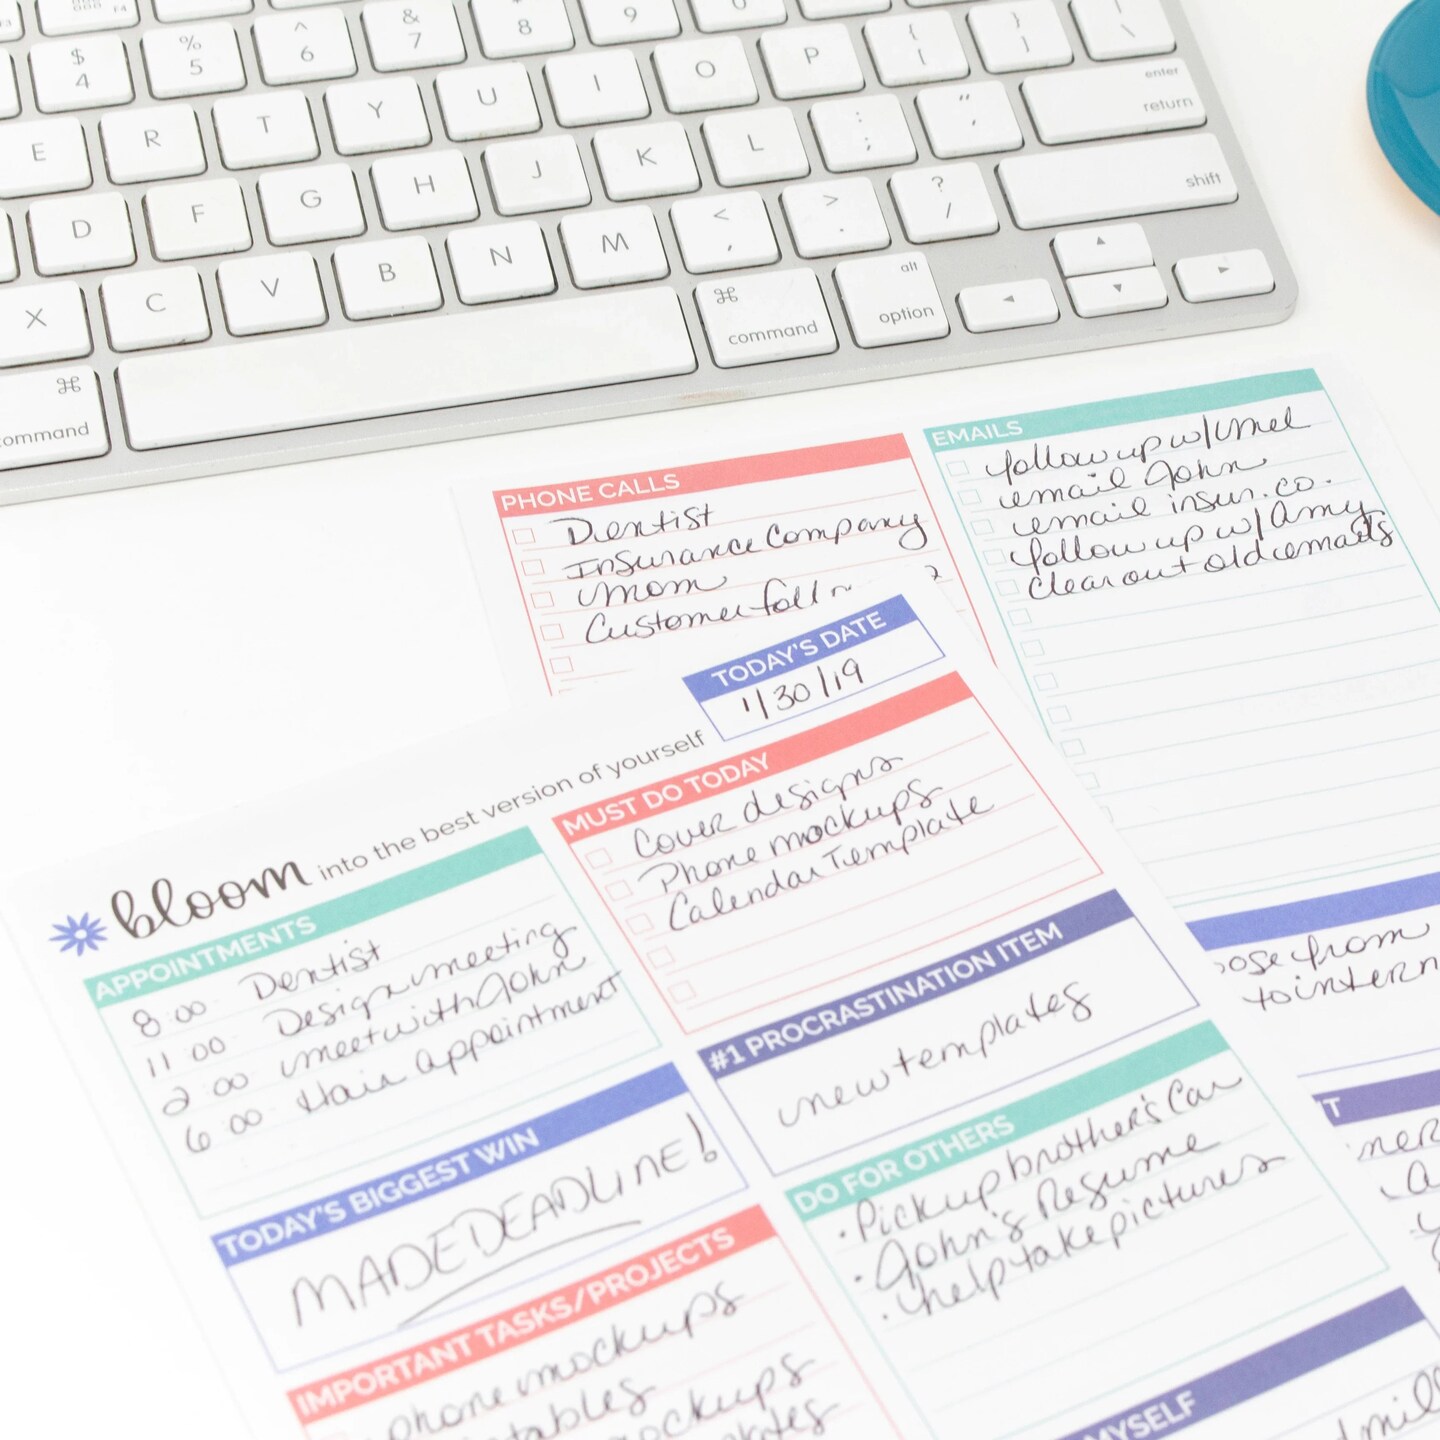 $
4
%
5
^
6
&
7
8
9
{
[
}
]
\
E
R
T
Y
U
I
O
P
enter
return
D
F
G
H
J
K
L
:
;
"
'
X
C
V
B
N
M
<
,
>
.
?
/
shift
⌘
command
⌘
command
alt
option
◄
▲
▼
►
PHONE CALLS
Dentist
Insurance Company
Mom
Customer
EMAILS
follow up w/ Mel
email John
email insur. co.
follow up w/ Amy
clear out old emails
TODAY'S DATE
1/30/19
bloom into the best version of yourself
APPOINTMENTS
8:00 Dentist
11:00 Design meeting
2:00 meet with John
6:00 Hair appointment
MUST DO TODAY
Cover designs
Phone mockups
Calendar Template
#1 PROCRASTINATION ITEM
new templates
TODAY'S BIGGEST WIN
MADE DEADLINE!
DO FOR OTHERS
• Pick up brother's Car
• John's Resume
• help take pictures
IMPORTANT TASKS/PROJECTS
phone mockups
mockups
MYSELF
from
to intern